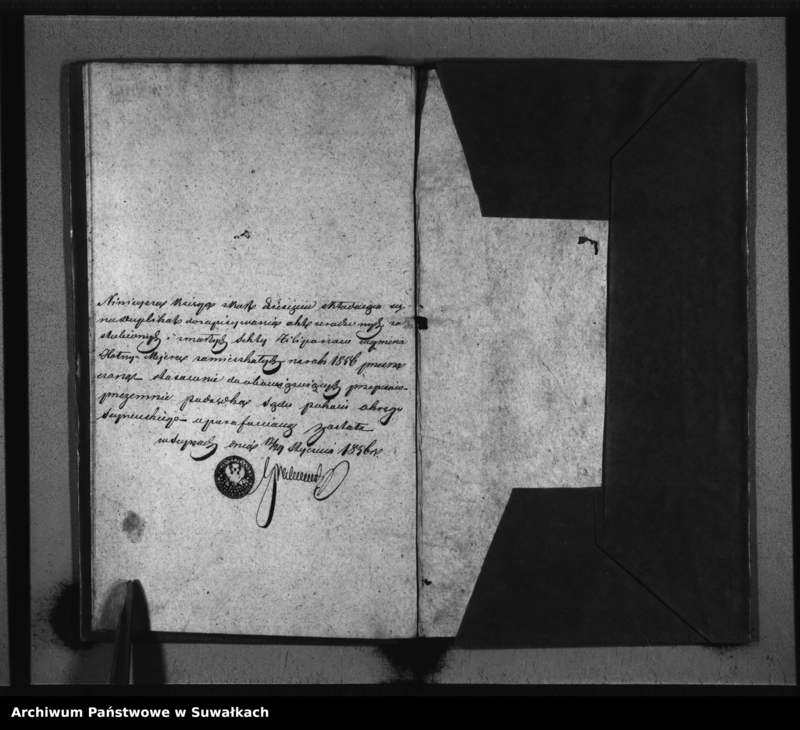 Niniejsza Księga kart dziesięciu składająca się
na duplikat do zapisywania akt urodzonych za
ślubionych i zmarłych Sekty Filiponów w gminie
zamieszkałych na rok 1856 przezna
czona stosownie do obowiązujących przepisów
przezemnie podsędka Sądu pokoju okręgu
Sejneńskiego uparafowaną została
w Sejnach dnia 12/24 Stycznia 1856 r.
Archiwum Państwowe w Suwałkach